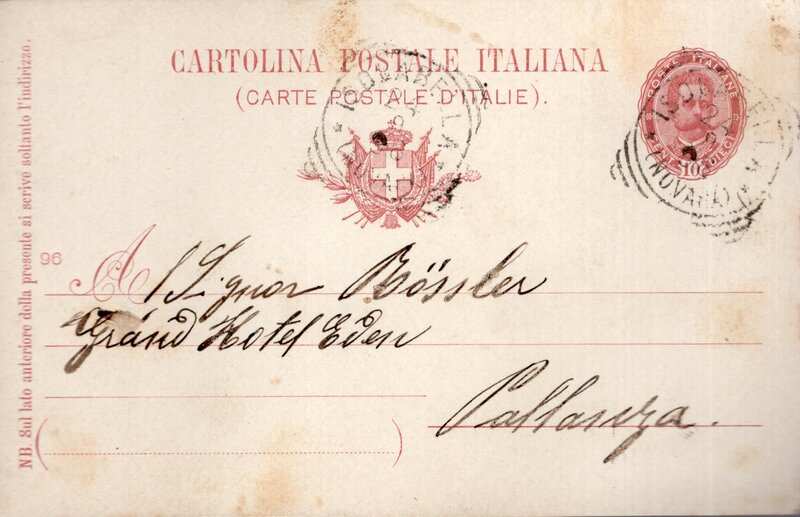 CARTOLINA POSTALE ITALIANA
(CARTE POSTALE D'ITALIE).
POSTE ITALIANE
CENT. 10 DIECI
ISOLABELLA
(NOVARA)
ISOLABELLA
(NOVARA)
NB. Sul lato anteriore della presente si scrive soltanto l'indirizzo.
96
Al Signor Rössler
Grand Hotel Eden
Pallanza.